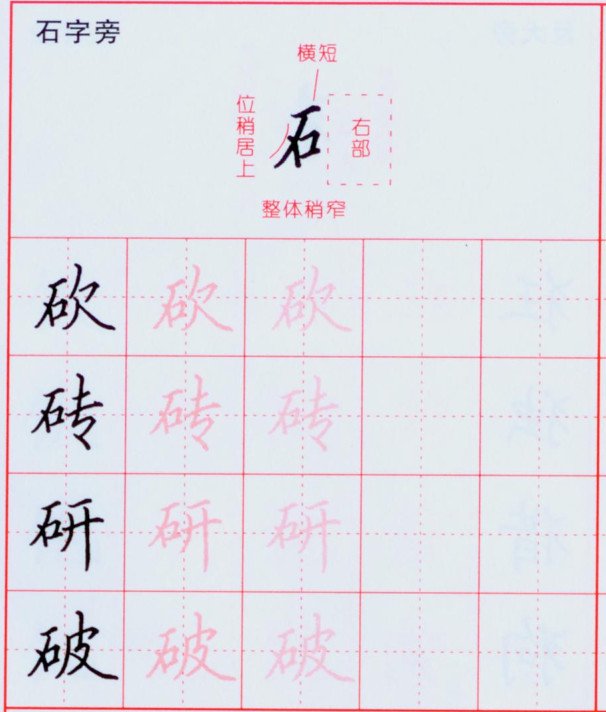 石字旁
横短
位稍居上
石
右部
整体稍窄
砍 砍 砍
砖 砖 砖
研 研 研
破 破 破